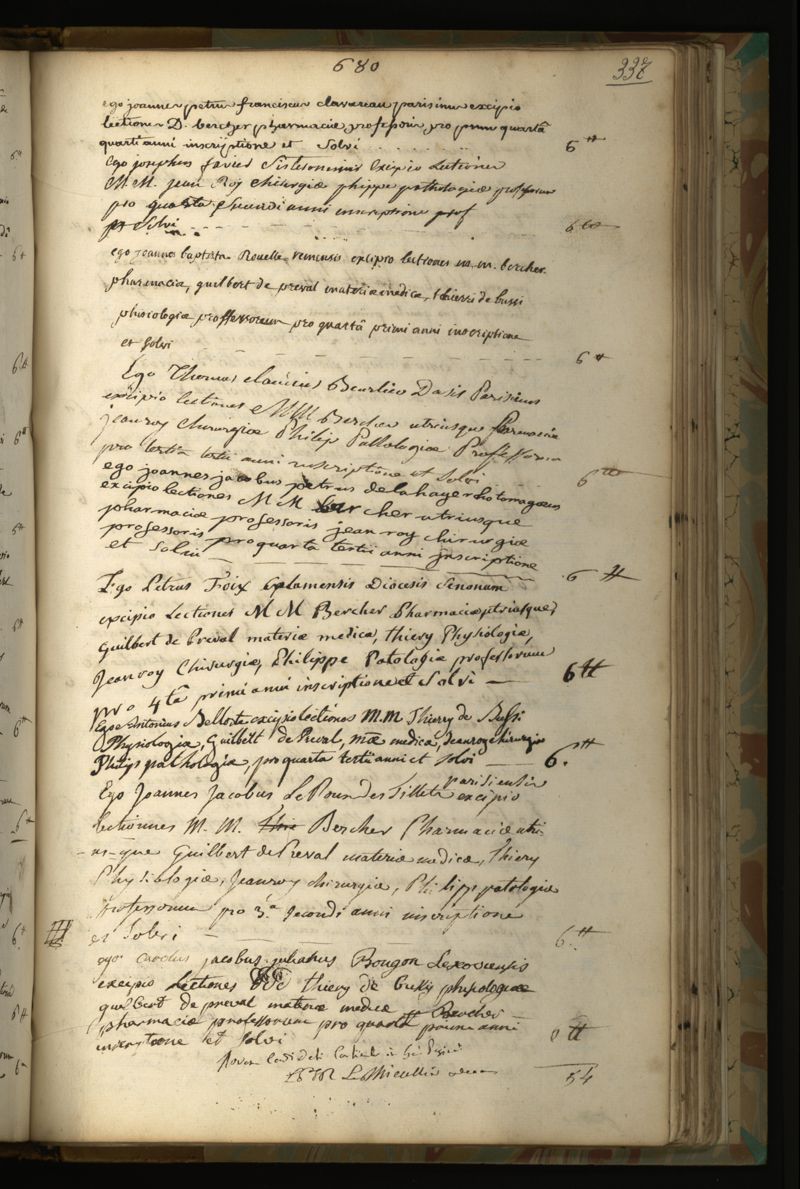 680
332
ego joannes petrus franciscus clavareau parisinus excipio
lectiones D. bercher pharmaciæ professoris pro quartâ
quarti anni inscriptione et solvi 6 ₶
Ego josephus favier excipio lectiones
M M. jean Roy chirurgiæ phippe pathologiæ professorum
pro quarta secundi anni inscriptione
solvi 6 ₶
ego joannes baptista Rouelle remensis excipio lectiones m. m. bercher
pharmaciæ, guilbert de preval materiæ medicæ, thierri de bussi
phisiologiæ professorum pro quartâ primi anni inscriptione
et solvi 6 ₶
Ego Thomas Beurlieu Parisinus
excipio lectiones MM Bercher utriusque farmaciæ
jeanroy chirurgiæ Philip Pathologiæ Professorum
pro tertiâ tertii anni inscriptione et solvi 6 ₶
ego joannes jacobus petrus delahaye rhotomagæus
excipio lectiones M M bercher utriusque
pharmaciæ professoris jean roy chirurgiæ
professoris pro quartâ tertii anni inscriptione
et solvi 6 ₶
Ego Petrus Foix Diocesis Senonum
excipio Lectiones M M Bercher Pharmaciæ utriusque,
Guilbert de Preval materiæ medicæ, Thiery Physiologiæ,
Jeanroy Chirurgiæ, Philippe Patologiæ professorum
pro 4ta primi anni inscriptione et solvi 6 ₶
Ego Antonius Belloste excipio lectiones M.M Thierry de Bussi
Physiologiæ, Guilbert de Preval, mæ medicæ, Jeanroy chirurgiæ
Philip pathologiæ, pro quarta tertii anni et solvi 6 ₶
Ego Joannes Jacobus Le Roux des Tillets parisiensis excipio
lectionnes M. M. Bercher Pharmaciæ utri-
us-que Guilbert de Preval materiæ medicæ, Thiery
Physiologiæ, Jeanroy chirurgiæ, Philipp patologiæ
Professorum pro 3.a secundi anni inscriptione
et solvi 6 ₶
ego carolus jacobus julianus Bougon Lexoviensis
excipio Lectiones thiery de bussy physiologiæ
guilbert de preval materiæ medicæ Bercher
pharmaciæ professorum pro quarta primi anni
inscriptione et solvi 6 ₶
L. Thieullier
54